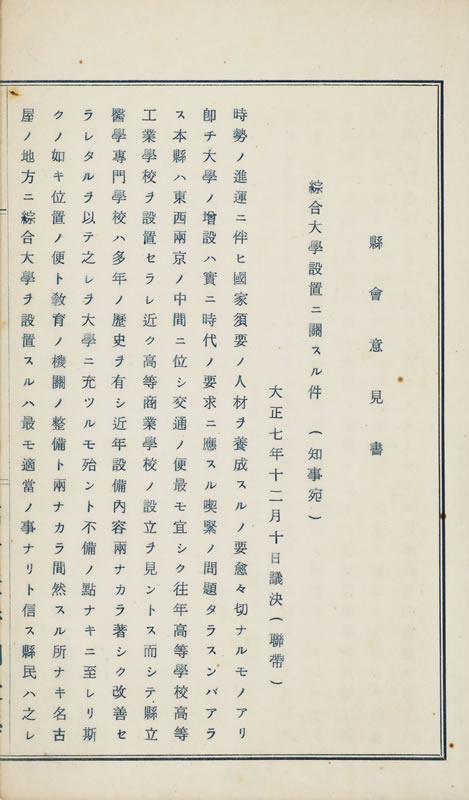 縣會意見書
綜合大學設置ニ關スル件 (知事宛)
大正七年十二月十日議決(聯帶)
時勢ノ進運ニ伴ヒ國家須要ノ人材ヲ養成スルノ要愈々切ナルモノアリ
卽チ大學ノ增設ハ實ニ時代ノ要求ニ應スル喫緊ノ問題タラスンバアラ
ス本縣ハ東西兩京ノ中間ニ位シ交通ノ便最モ宜シク往年高等學校高等
工業學校ヲ設置セラレ近ク高等商業學校ノ設立ヲ見ントス而シテ縣立
醫學專門學校ハ多年ノ歷史ヲ有シ近年設備內容兩ナカラ著シク改善セ
ラレタルヲ以テ之レヲ大學ニ充ツルモ殆ント不備ノ點ナキニ至レリ斯
クノ如キ位置ノ便ト敎育ノ機關ノ整備ト兩ナカラ間然スル所ナキ名古
屋ノ地方ニ綜合大學ヲ設置スルハ最モ適當ノ事ナリト信ス縣民ハ之レ